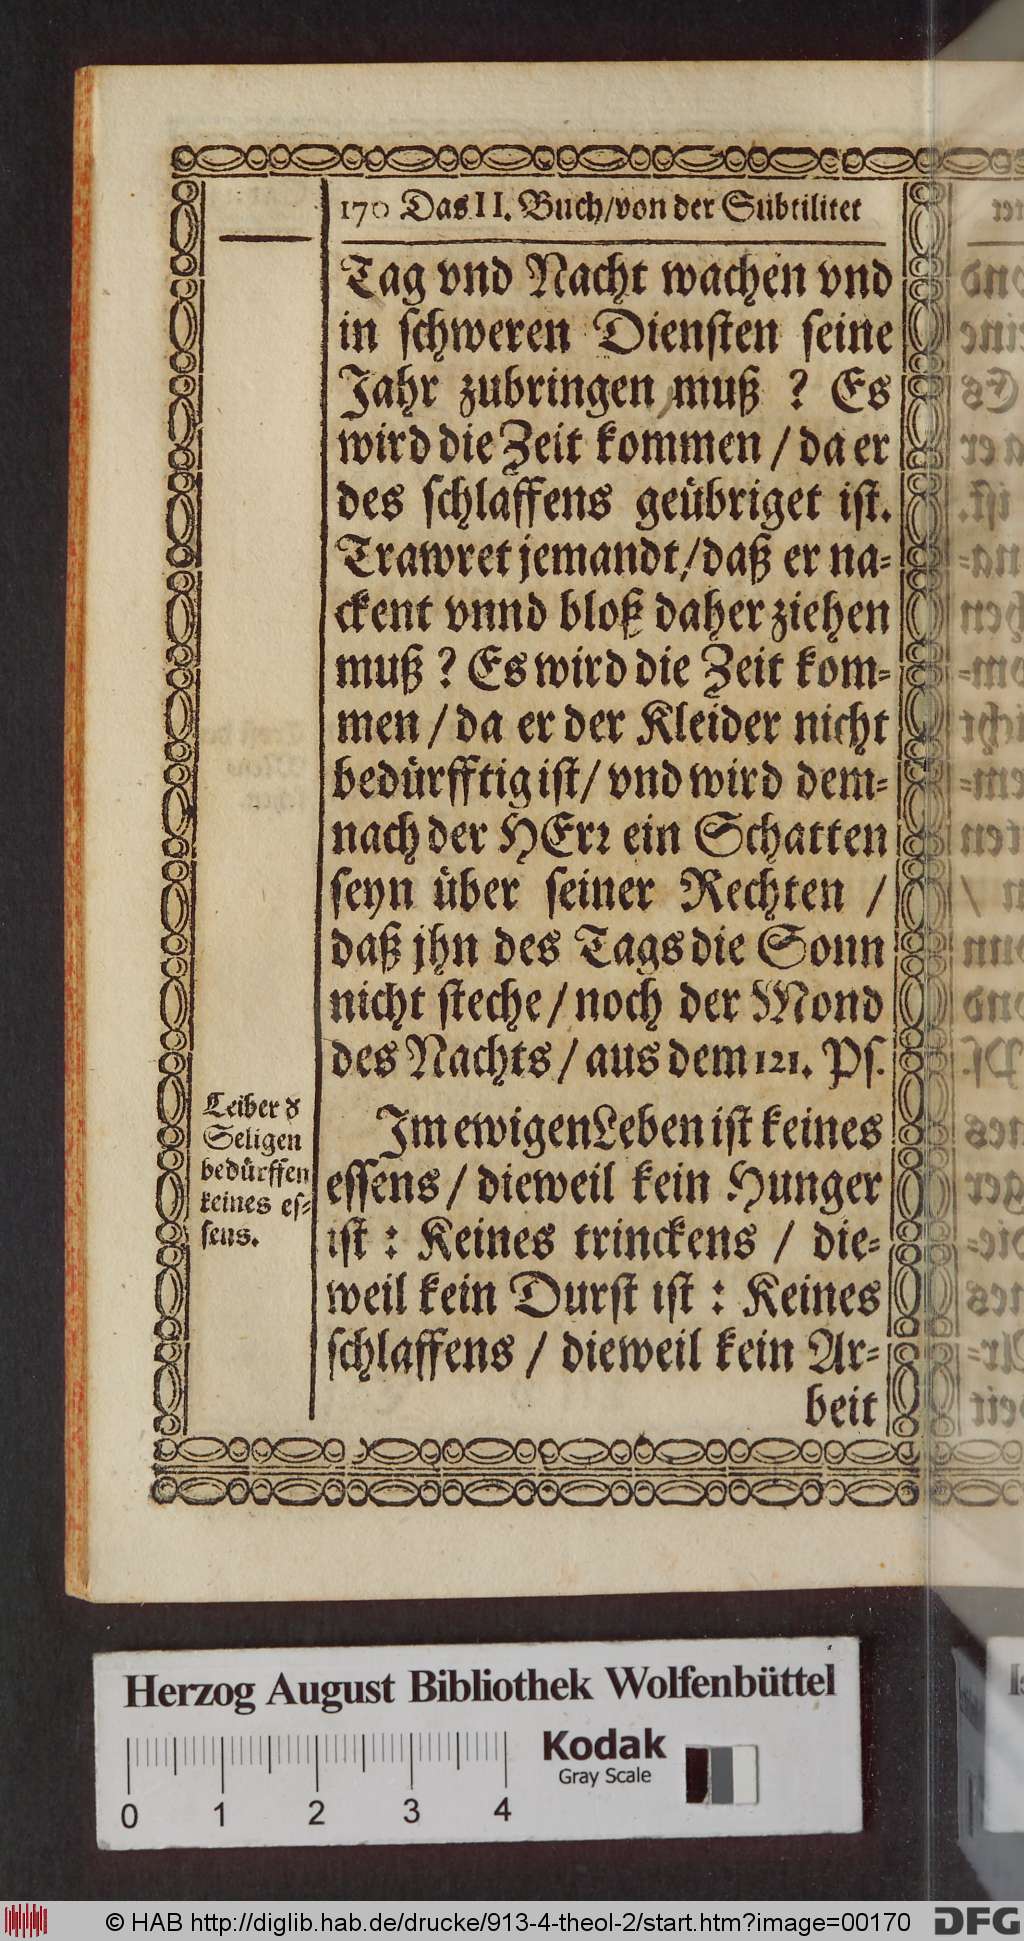 170 Das II. Buch/von der Subtilitet
Tag vnd Nacht wachen vnd
in schweren Diensten seine
Jahr zubringen muß ? Es
wird die Zeit kommen / da er
des schlaffens geübriget ist.
Trawret jemandt/daß er na-
ckent vnnd bloß daher ziehen
muß ? Es wird die Zeit kom-
men / da er der Kleider nicht
bedürfftig ist/ vnd wird dem-
nach der HErr ein Schatten
seyn über seiner Rechten /
daß jhn des Tags die Sonn
nicht steche / noch der Mond
des Nachts / aus dem 121. Ps.
Leiber d
Seligen
bedürffen
keines es-
sens.
Im ewigen Leben ist keines
essens / dieweil kein Hunger
ist : Keines trinckens / die-
weil kein Durst ist : Keines
schlaffens / dieweil kein Ar-
beit
Herzog August Bibliothek Wolfenbüttel
Kodak
Gray Scale
0 1 2 3 4
© HAB http://diglib.hab.de/drucke/913-4-theol-2/start.htm?image=00170
DFG